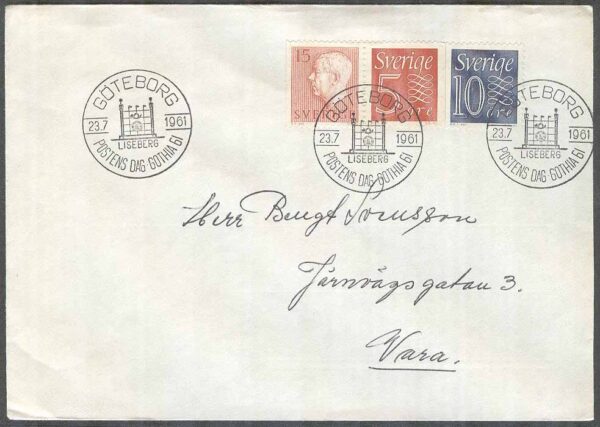 GÖTEBORG
23.7 1961
LISEBERG
POSTENS DAG GOTHIA 61
15
SVERIGE
Sverige
5 öre
Sverige
10 öre
GÖTEBORG
23.7 1961
LISEBERG
POSTENS DAG GOTHIA 61
GÖTEBORG
23.7 1961
LISEBERG
POSTENS DAG GOTHIA 61
Herr Bengt Svensson
Järnvägsgatan 3.
Vara.